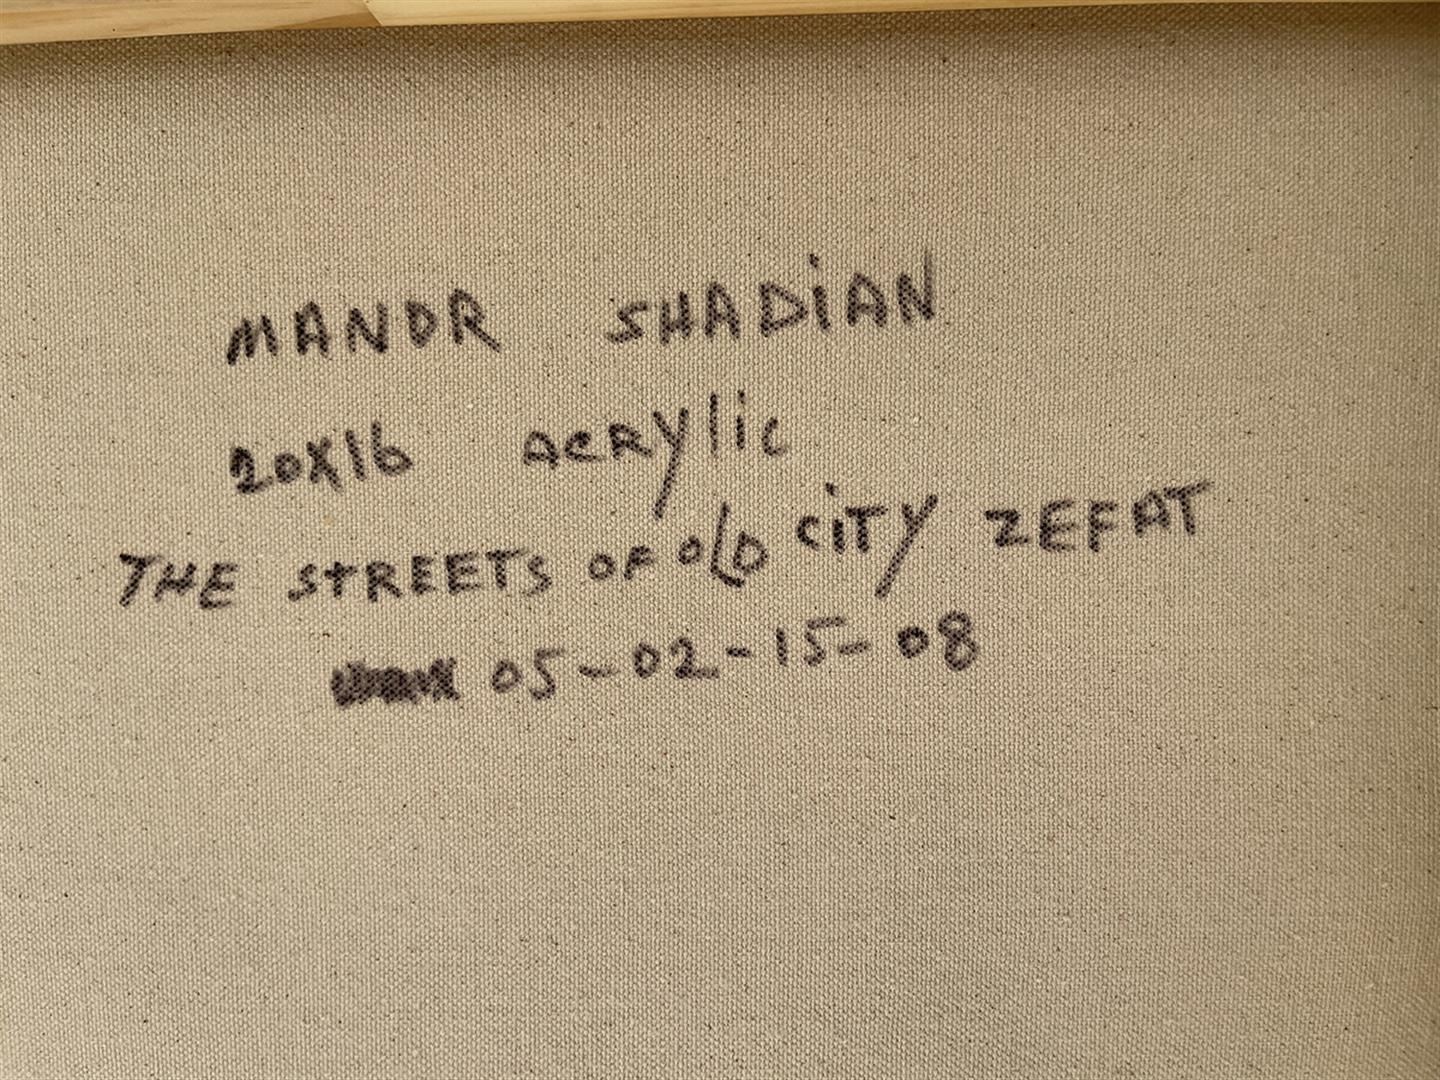 MANOR SHADiAN
20X16 ACRYlic
THE STREETS OF OLD CiTY ZEFAT
05-02-15-08